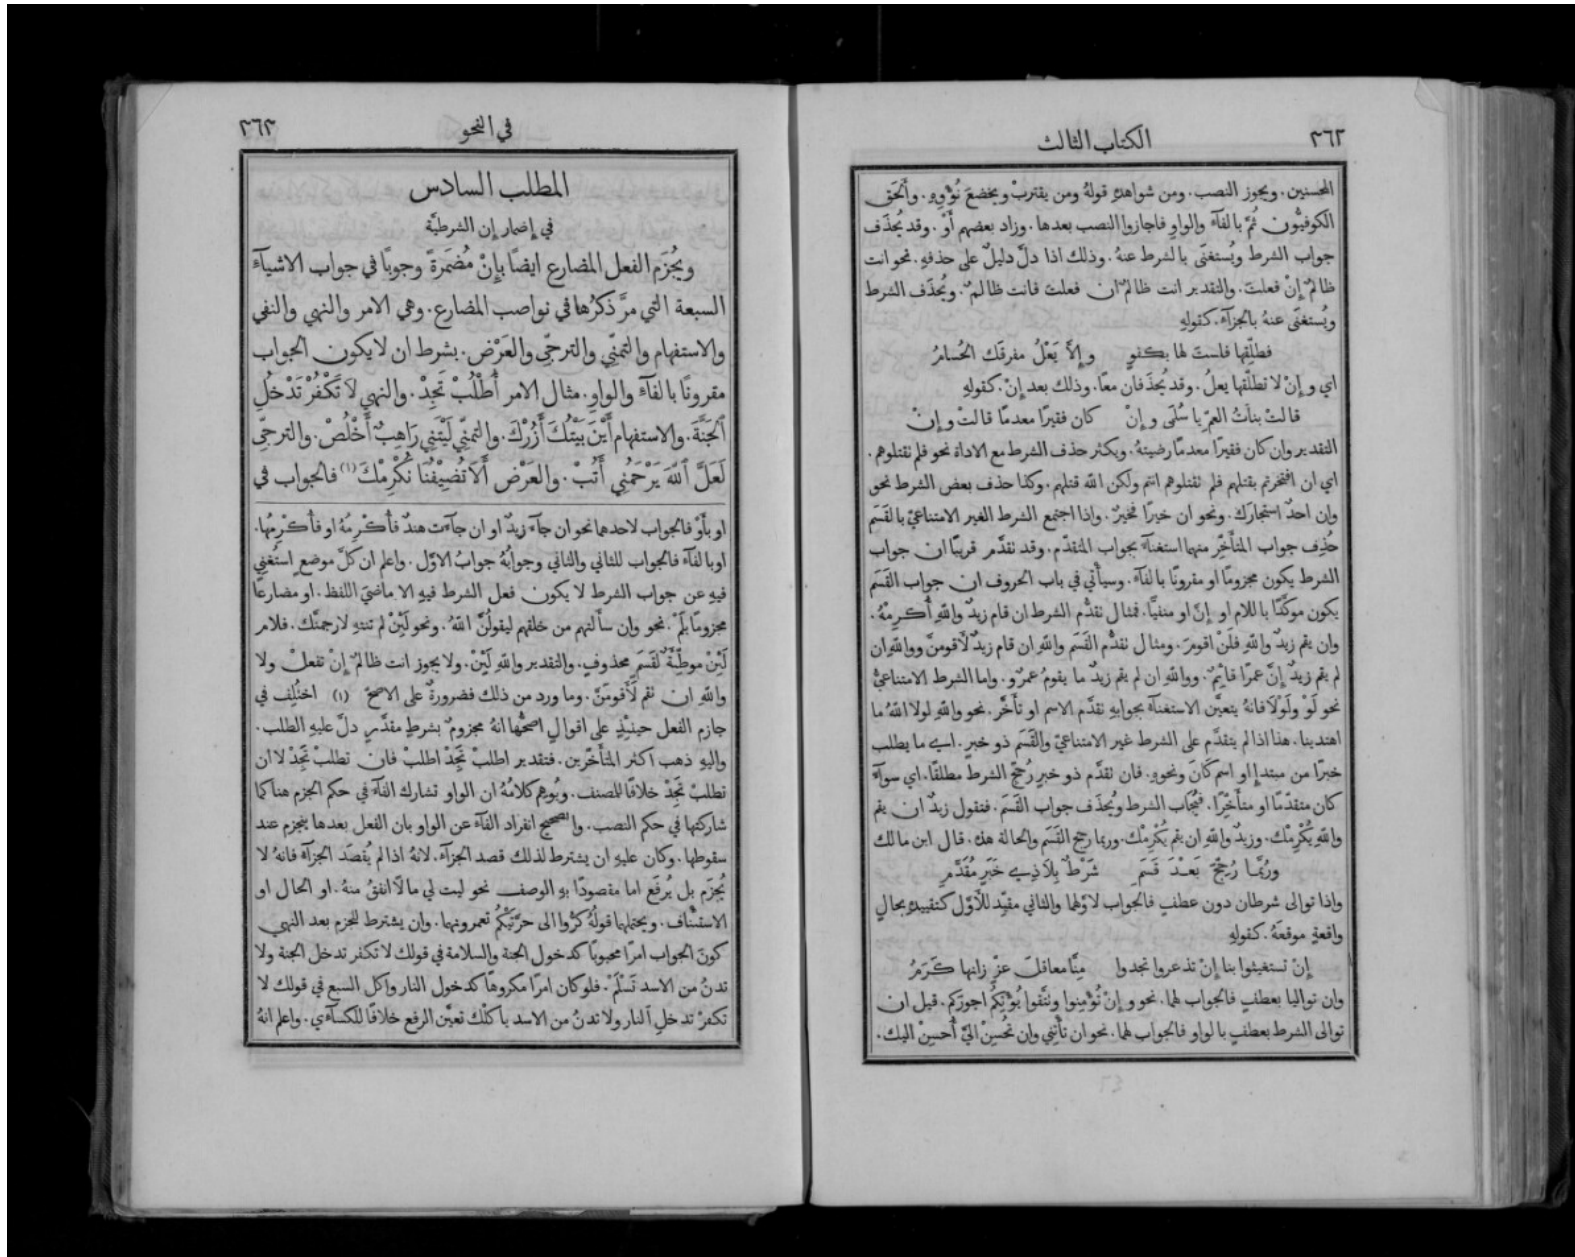 ٣٦٢
الكتاب الثالث
المحسنين. ويجوز النصب. ومن شواهدهِ قولهُ ومن يقتربْ ويخضعَ نُؤْوِهِ. وأَلحَق
الكوفيُّون ثُمَّ بالفآءَ والواوِ فاجازوا النصب بعدها. وزاد بعضهم أَوْ. وقد يُحذَف
جواب الشرط ويُستغنَى بالشرط عنهُ. وذلك اذا دلَّ دليلٌ على حذفهِ. نحو انت
ظالمٌ إِنْ فعلتَ. والتقدير انت ظالمٌ ان فعلتَ فانت ظالمٌ. ويُحذَف الشرط
ويُستغنَى عنهُ بالجزآءَ. كقولهِ
فطلِّقها فلستَ لها بكفوٍ وإِلاَّ يَعْلُ مفرقَك الحُسامُ
اي وإِنْ لا تطلّقها يعلُ. وقد يُحذَفان معًا. وذلك بعد إِنْ. كقولهِ
قالتْ بناتُ العمِّ يا سُلَمى وإِنْ كان فقيرًا معدمًا قالتْ وإِنْ
التقدير وان كان فقيرًا معدمًا رضيتهُ. ويكثر حذف الشرط مع الاداة نحو فلم تقتلوهم.
اي ان افتخرتم بقتلهم فلم تقتلوهم انتم ولكن الله قتلهم. وكذا حذف بعض الشرط نحو
وإن احدٌ استجارك. ونحو ان خيرًا فخيرٌ. واذا اجتمع الشرط الغير الامتناعيّ بالقَسَم
حُذِف جواب المتأَخِّر منهما استغنآءً بجواب المتقدّم. وقد تقدَّم قريبًا ان جواب
الشرط يكون مجزومًا او مقرونًا بالفآءَ. وسيأْتي في باب الحروف ان جواب القَسَم
يكون موكَّدًا باللام او إِنَّ او منفيًّا. فمثال تقدُّم الشرط ان قام زيدٌ واللهِ أُكرِمْهُ.
وان يقم زيدٌ واللهِ فلَنْ اقومَ. ومثال تقدُّم القَسَم واللهِ ان قام زيدٌ لَأَقومنَّ وواللهِ ان
لم يقم زيدٌ إِنَّ عمرًا قائِمٌ. وواللهِ ان لم يقم زيدٌ ما يقومُ عمرٌو. واما الشرط الامتناعيُّ
نحو لَوْ ولَوْلاَ فانهُ يتعيَّن الاستغنآءُ بجوابهِ تقدَّم الاسم او تأَخَّر. نحو واللهِ لولا اللهُ ما
اهتدينا. هذا اذا لم يتقدَّم على الشرط غير الامتناعيّ والقَسَم ذو خبرٍ. اي ما يطلب
خبرًا من مبتدإٍ او اسم كَانَ ونحوهِ. فان تقدَّم ذو خبرٍ رُجِّح الشرط مطلقًا. اي سوآءٌ
كان متقدّمًا او متأَخّرًا. فيُجَاب الشرط ويُحذَف جواب القَسَم. فتقول زيدٌ ان يقم
واللهِ يُكْرِمْك. وزيدٌ واللهِ ان يقم يُكْرِمْك. وربما رجح القَسَم والحالة هذه. قال ابن مالك
ورُبَّمَا رُجِّحَ بَعْدَ قَسَمِ شَرْطٌ بِلَا ذِي خَبَرٍ مُقَدَّمِ
واذا توالى شرطان دون عطفٍ فالجواب لاوّلهما والثاني مقيِّد للأَوَّل كتقييدهِ بحالٍ
واقعةٍ موقعَهُ. كقولهِ
إِنْ تستغيثوا بنا إِنْ تذعروا تجدوا مِنَّا معاقلَ عزٍّ زانها كَرَمُ
وان تواليا بعطفٍ فالجواب لهما. نحو وإِنْ تُؤْمِنوا وتتَّقوا يُؤْتِكُم اجورَكم. قيل ان
توالى الشرط بعطفٍ بالواو فالجواب لهما. نحو ان تأْتِني وان تُحسِنْ اليَّ أُحسِنْ اليك.
في النحو
٣٦٣
المطلب السادس
في إِضمار إِن الشرطيَّة
ويُجْزَم الفعل المضارع ايضًا بإِنْ مُضمَرةً وجوبًا في جواب الاشيآءَ
السبعة التي مرَّ ذكرُها في نواصب المضارع. وهي الامر والنهي والنفي
والاستفهام والتمنّي والترجّي والعَرْض. بشرط ان لا يكون الجواب
مقرونًا بالفآءَ والواوِ. مثال الامر أُطْلُبْ تَجِدْ. والنهي لاَ تَكْفُرْ تَدْخُلِ
ٱلْجَنَّةَ. والاستفهام أَيْنَ بَيْتُكَ أَزُرْكَ. والتمنّي لَيْتَنِي رَاهِبٌ أَخْلُصْ. والترجّي
لَعَلَّ ٱللهَ يَرْحَمُنِي أَتُبْ. والعَرْض أَلاَ تُضِيْفُنَا نُكْرِمْكَ (١) فالجواب في
او بأَوْ فالجواب لاحدهما نحو ان جآءَ زيدٌ او ان جآءَت هندٌ فأَكْرِمْهُ او فأَكْرِمْها.
او بالفآءَ فالجواب للثاني والثاني وجوابهُ جوابُ الاوَّل. واعلم ان كلَّ موضعٍ استُغني
فيهِ عن جواب الشرط لا يكون فعل الشرط فيهِ الا ماضيَ اللفظ. او مضارعًا
مجزومًا بلَمْ. نحو وإن سأَلتهم من خلقهم ليقولُنَّ اللهُ. ونحو لَئِنْ لم تنتهِ لارجمنَّك. فلام
لَئِنْ موطِّئةٌ لقَسَمٍ محذوفٍ. والتقدير واللهِ لَئِنْ. ولا يجوز انت ظالمٌ إِنْ تفعلْ ولا
واللهِ ان تقم لأَقومَنَّ. وما ورد من ذلك فضرورةٌ على الاصحّ (١) اختُلِف في
جازم الفعل حينئِذٍ على اقوالٍ اصحُّها انهُ مجزومٌ بشرطٍ مقدَّرٍ دلَّ عليهِ الطلب.
واليهِ ذهب اكثر المتأَخّرين. فتقدير اطلبْ تَجِدْ اطلبْ فان تطلبْ تَجِدْ لا ان
تطلبْ تَجِدْ خلافًا للمصنف. ويُوهِم كلامُهُ ان الواو تشارك الفآءَ في حكم الجزم هنا كما
شاركتها في حكم النصب. والصحيح انفراد الفآءَ عن الواو بان الفعل بعدها ينجزم عند
سقوطها. وكان عليهِ ان يشترط لذلك قصد الجزآءَ. لانهُ اذا لم يُقصَد الجزآءُ فانهُ لا
يُجزَم بل يُرفَع اما مقصودًا بهِ الوصف نحو ليت لي مالًا انفقُ منهُ. او الحال او
الاستئناف. ويحتملهما قولهُ كرُّوا الى حرَّتَيْكُم تعمرونها. وان يشترط للجزم بعد النهي
كونَ الجواب امرًا محبوبًا كدخول الجنة والسلامة في قولك لا تكفر تدخل الجنة ولا
تدنُ من الاسد تَسْلَمْ. فلو كان امرًا مكروهًا كدخول النار واكل السبع في قولك لا
تكفرْ تدخلِ ٱلنار ولا تدنُ من الاسد ياكلْك تعيَّن الرفع خلافًا للكسآءي. واعلم انهُ